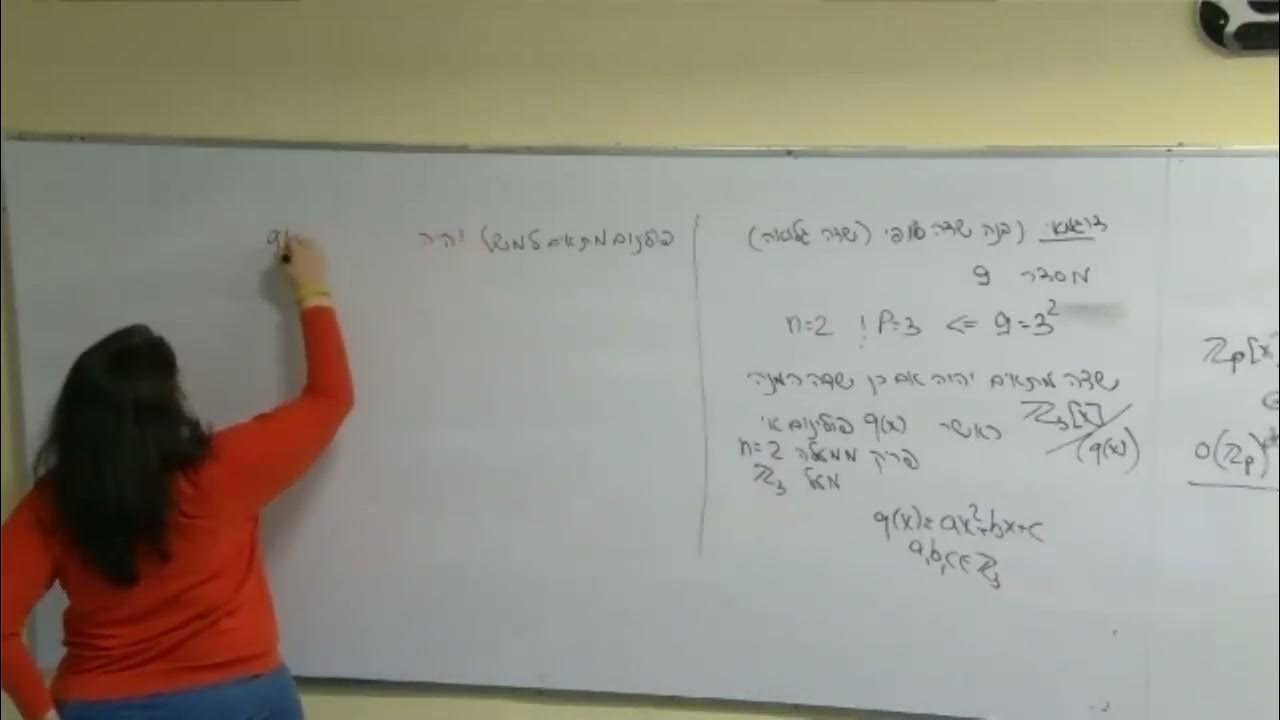 דוגמא נבנה שדה סופי (שדה גלואה)
מסדר 9
9=3² => P=3 ! n=2
שדה מתאים יהיה אם כן שדה המנה
ℤ₃[x]/(q(x)) כאשר q(x) פולינום אי
פריק ממעלה n=2
מעל ℤ₃
q(x)=ax²+bx+c
a,b,c∈ℤ₃
פולינום מתאים למשל יהיה
q(
ℤp[x
O(ℤp)